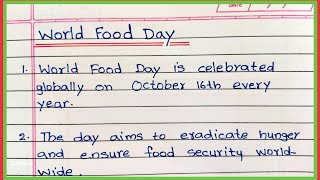 DATE
World Food Day
1. World Food Day is celebrated
globally on October 16th every
year.
2. The day aims to eradicate hunger
and ensure food security world-
wide.